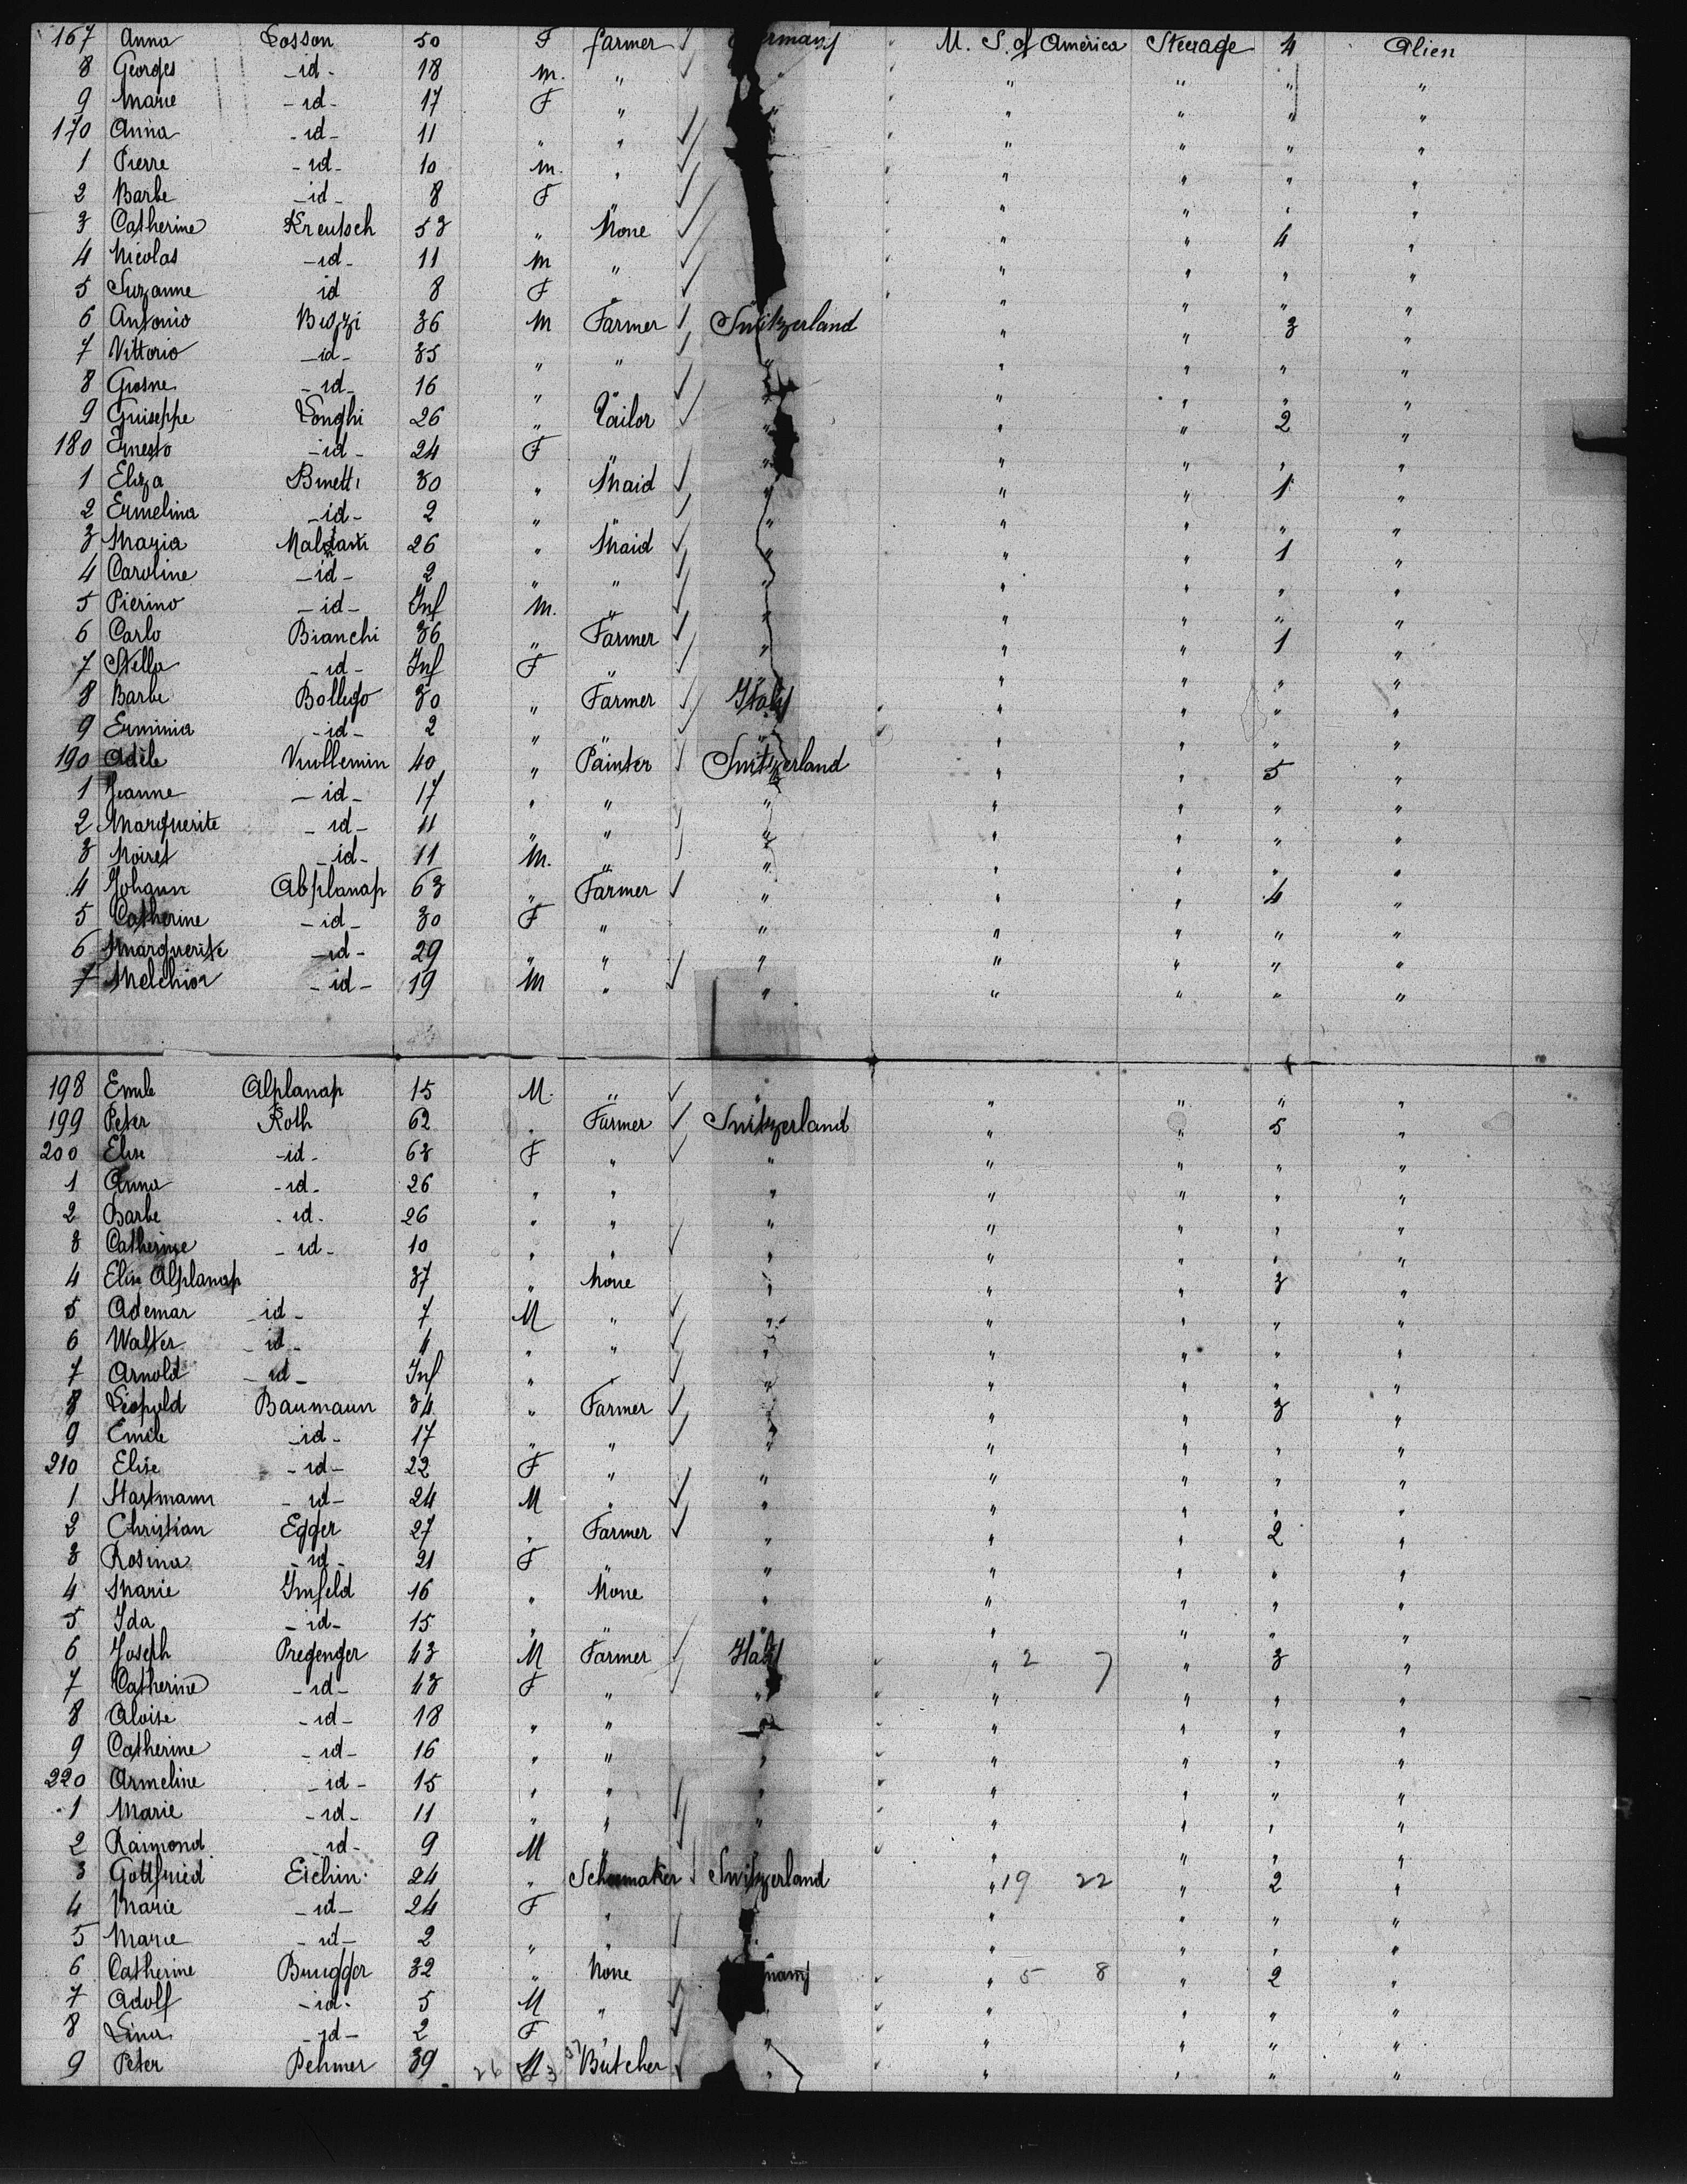 167 Anna Losson 50 F farmer ermany U. S. of America Steerage 4 Alien
8 Georges -id- 18 m. " " " " "
9 Marie -id- 17 F " " " " " "
170 Anna -id- 11 " " " " " "
1 Pierre -id- 10 m. " " " " "
2 Barbe -id- 8 F " " " " "
3 Catherine Kreutsch 53 " None " " 4 "
4 Nicolas -id- 11 m " " " " "
5 Suzanne id 8 F " " " " "
6 Antonio 36 M Farmer Switzerland " " 3 "
7 Vittorio -id- 35 " " " " " " "
8 -id- 16 " " " " " " "
9 Guiseppe Longhi 26 " Tailor " " " 2 "
180 Ernesto -id- 24 F " " " " " "
1 Eliza Binetti 30 " Maid " " " 1 "
2 Ermelina -id- 2 " " " " " " "
3 Maria 26 " Maid " " " 1 "
4 Caroline -id- 2 " " " " " " "
5 Pierino -id- Inf M. " " " " " "
6 Carlo Bianchi 36 " Farmer " " " 1 "
7 Stella -id- Inf F " " " " " "
8 Barbe Bollego 30 " Farmer Italy " " " "
9 Erminia -id- 2 " " " " " " "
190 Adèle Vuillemin 40 " Painter Switzerland " " 5 "
1 Jeanne -id- 17 " " " " " " "
2 Marguerite -id- 11 " " " " " " "
3 Noiret -id- 11 M. " " " " " "
4 Johann Abplanap 63 " Farmer " " " 4 "
5 Catherine -id- 30 F " " " " " "
6 Marguerite -id- 29 " " " " " " "
7 Melchior -id- 19 M " " " " " "
198 Emile Alplanap 15 M. " " " " " "
199 Peter Roth 62 " Farmer Switzerland " " 5 "
200 Elise -id- 63 F " " " " " "
1 Anna -id- 26 " " " " " " "
2 Barbe -id- 26 " " " " " " "
3 Catherine -id- 10 " " " " " " "
4 Elise Alplanap 37 " None " " " 3 "
5 Ademar id- 7 M " " " " " "
6 Walter -id- 4 " " " " " " "
7 Arnold -id- Inf " " " " " "
8 Léopold Baumann 34 " Farmer " " " 3 "
9 Emile -id- 17 " " " " " " "
210 Elise -id- 22 F " " " " " "
1 Hartmann -id- 24 M " " " " " "
2 Christian Egger 27 " Farmer " " " 2 "
3 Rosina -id- 21 F " " " " "
4 Marie Imfeld 16 " None " " " " "
5 Ida -id- 15 " " " " " " "
6 Joseph Pregenzer 43 M Farmer Italy " 2 7 " 3 "
7 Catherine -id- 43 F " " " " " "
8 Aloise -id- 18 " " " " " "
9 Catherine -id- 16 " " " " " " "
220 Armeline -id- 15 " " " " " " "
1 Marie -id- 11 " " " " " " "
2 Raimond -id- 9 M " " " " "
3 Gottfried Eichin 24 " Schoemaker Switzerland " 19 22 " 2 "
4 Marie -id- 24 F " " " " "
5 Marie -id- 2 " " " " " "
6 Catherine Brugger 32 " None many " 5 8 " 2 "
7 Adolf -id- 5 M " " " " " "
8 Lina -id- 2 F " " " " " "
9 Peter Dehmer 39 26 M Butcher " " " " "